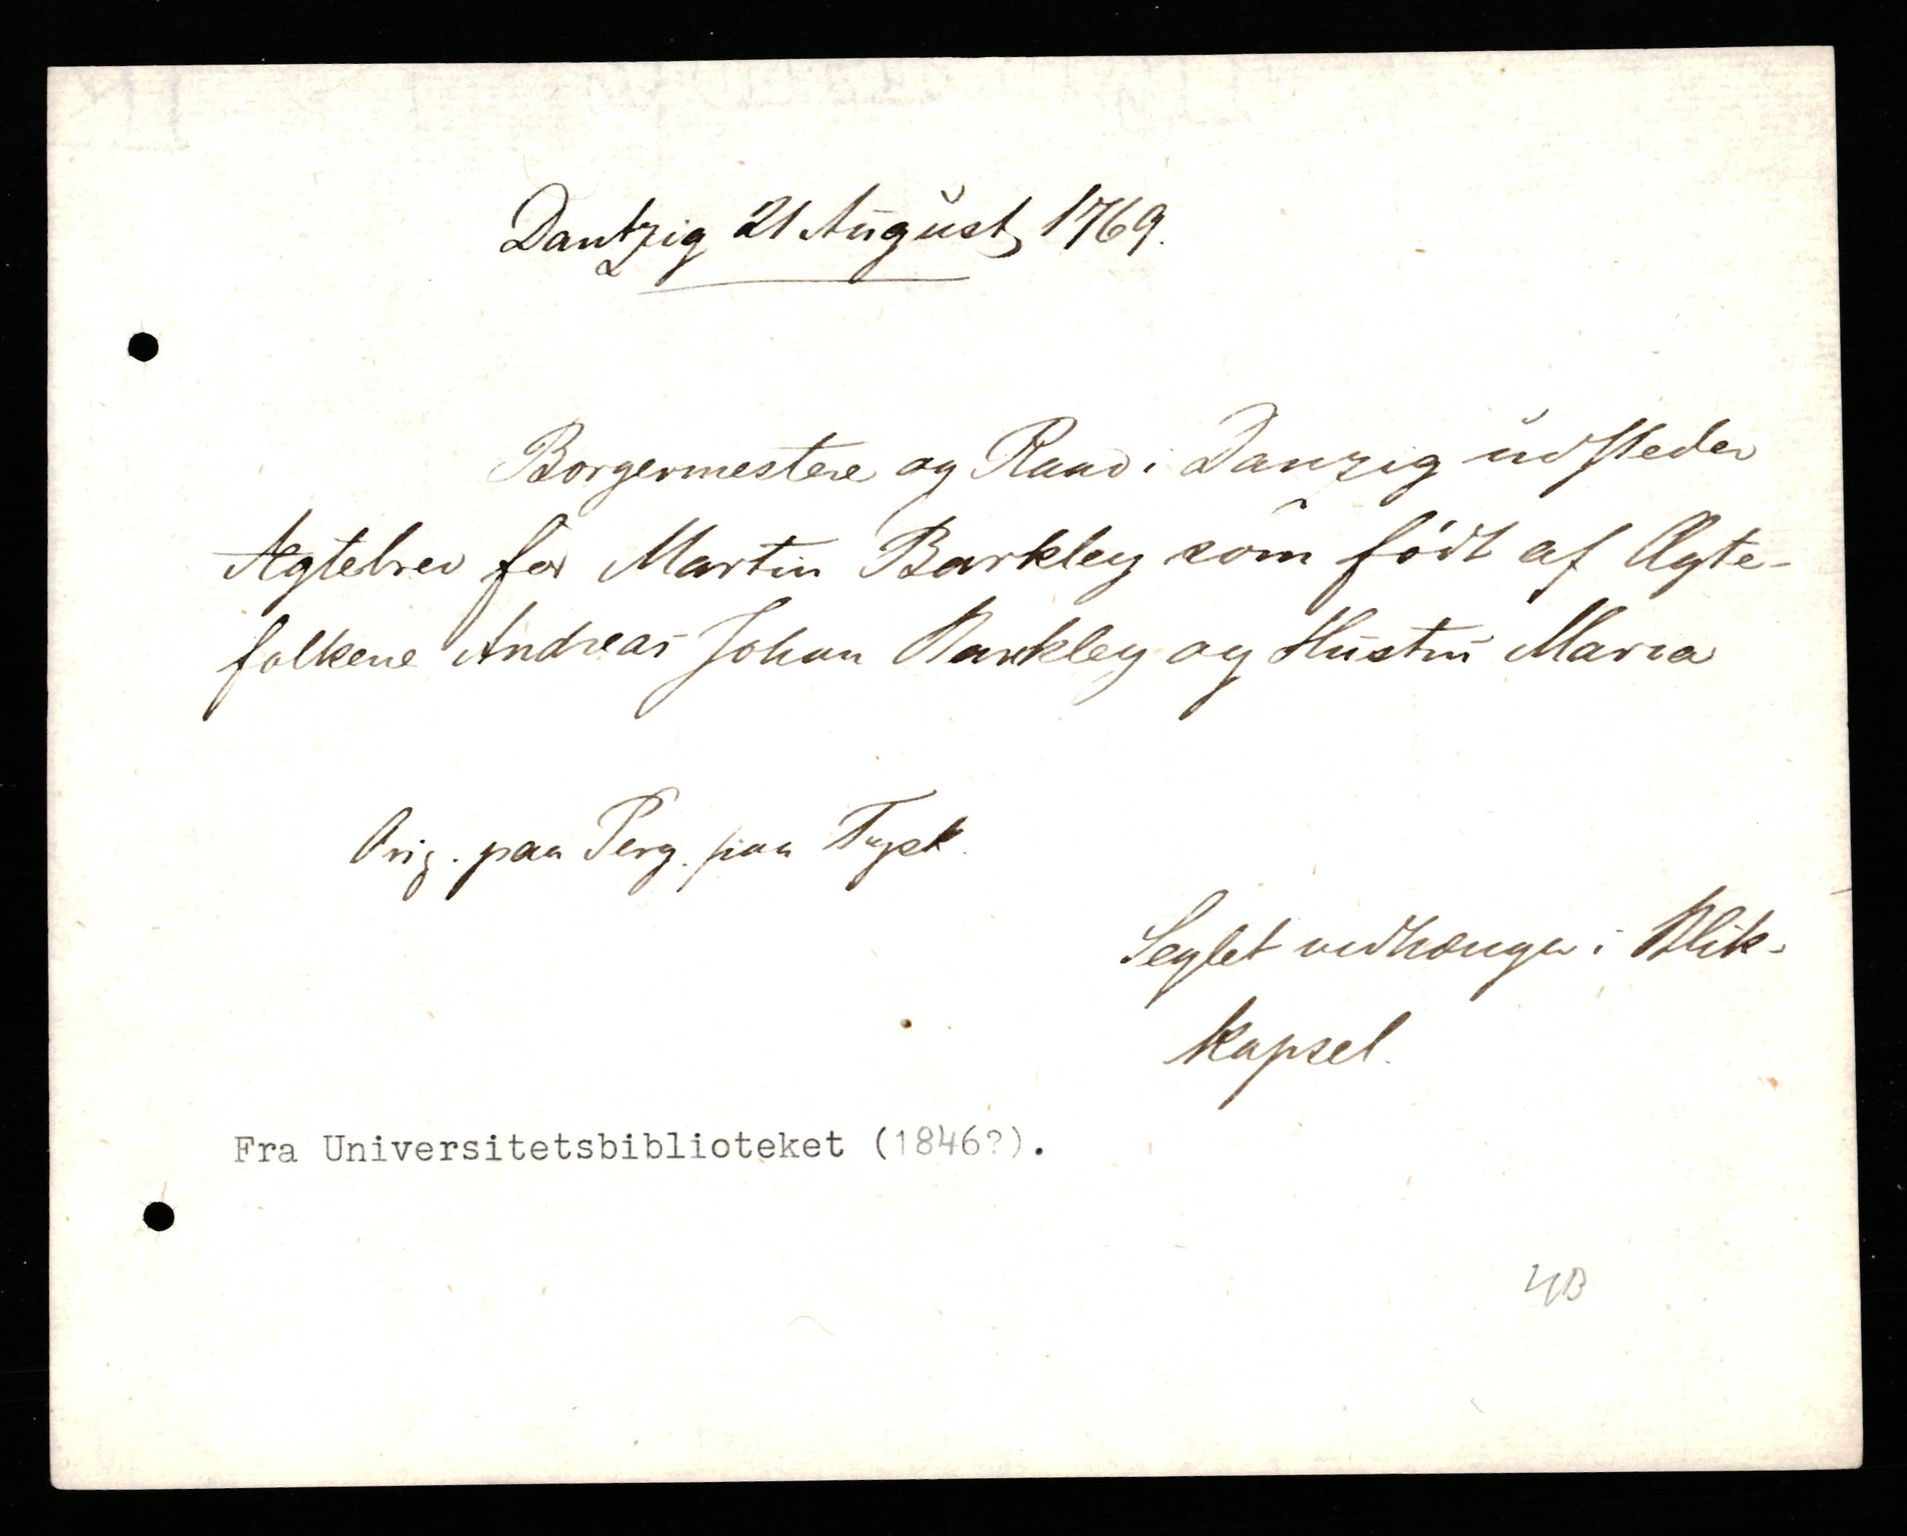 Dantzig 21 August 1769.
Borgermestere og Raad i Danzig udsteder
Ægtebrev for Martin Barkley som født af Ægte-
folkene Andreas Johan Barkley og Hustru Maria
Orig. paa Perg. paa Tysk.
Seglet vedhænger i Blik-
kapsel.
Fra Universitetsbiblioteket (1846?).